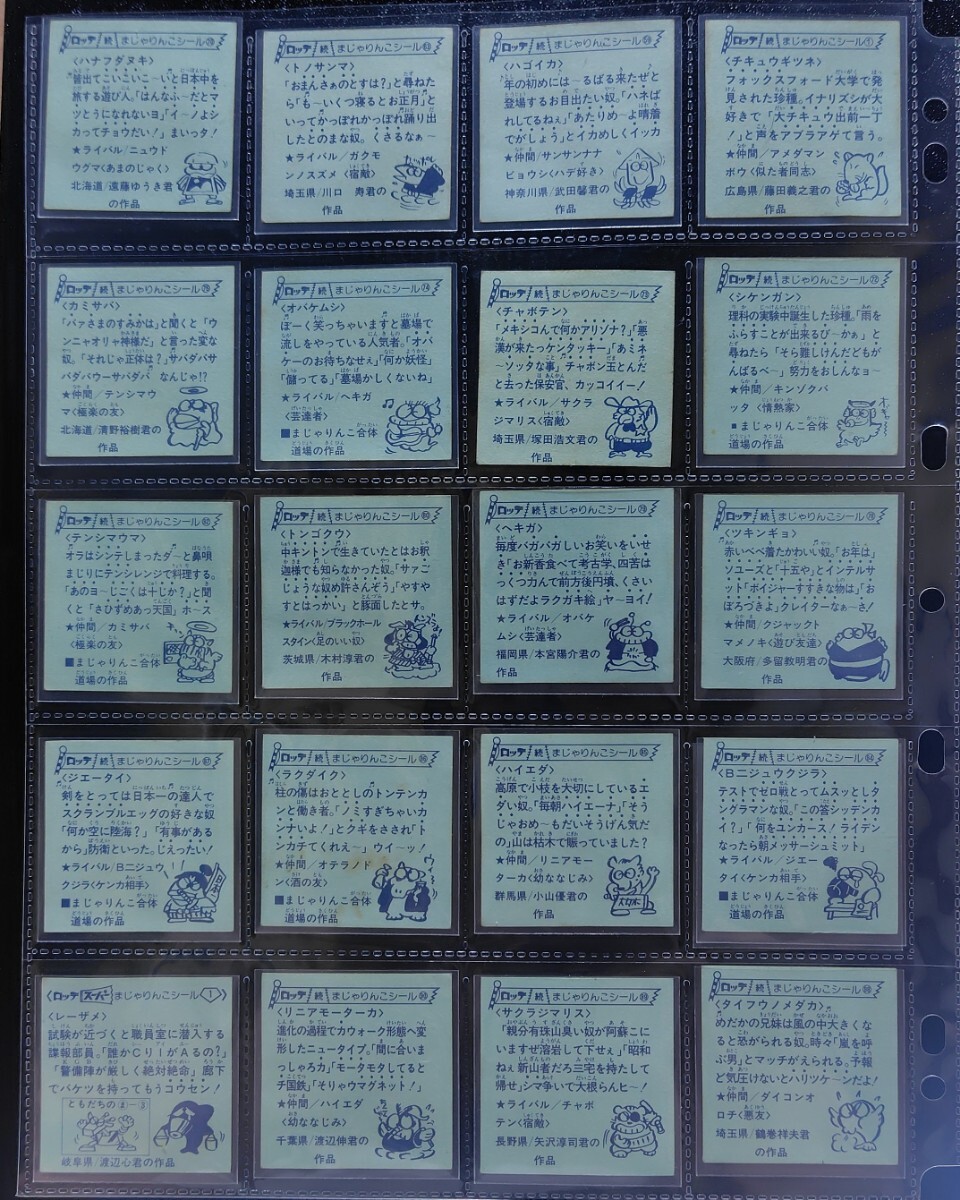 ロッテ 続 まじゃりんこシール
〈ハナフダヌキ〉
皆出てこいこいこ~いと日本中を
旅する遊び人。「はんなふ~だとマ
ツとうになれないヨ」「イ~のよシ
カってチョウだい!」まいッタ!
★ライバル/ニュウド
ウグマ〈あまのじゃく〉
北海道/遠藤ゆうき君
の作品
ロッテ 続 まじゃりんこシール
〈トノサンマ〉
「おまんさぁのとすは?」と尋ねた
ら「も~いくつ寝るとお正月」と
いってかっぽれかっぽれ踊り出
したとのまな奴。くさるなぁ~
★ライバル/ガクモ
ンノススズメ〈宿敵〉
埼玉県/川口 寿君の
作品
ロッテ 続 まじゃりんこシール
〈ハゴイカ〉
年の初めには~るばる来たぜと
登場するお目出たい奴。「ハネば
れしてるねぇ」「あたりめ~よ晴着
でがしょう」とイカめしくイッカ
★仲間/サンサンナナ
ビョウシ〈ハデ好き〉
神奈川県/武田馨君の
作品
ロッテ 続 まじゃりんこシール
〈チキュウギツネ〉
フォックスフォード大学で発
見された珍種。イナリズシが大
好きで「大チキュウ出前一丁
!」と声をアブラアゲて言う。
★仲間/アメダマン
ボウ〈似た者同志〉
広島県/藤田義之君の
作品
ロッテ 続 まじゃりんこシール
〈カミサバ〉
「バァさまのすみかは」と聞くと「ウ
ンニャオリャ神様だ」と言った変な
奴。「それじゃ正体は?」サバダバサ
バダバウーサバダバ なんじゃ!?
★仲間/テンシマウ
マ〈極楽の友〉
北海道/清野裕樹君の
作品
ロッテ 続 まじゃりんこシール
〈オバケムシ〉
ぼーく笑っちゃいますと墓場で
流しをやっている人気者。「オバ
ケーのお待ちなせぇ」「何か妖怪」
「儲ってる」「墓場かしくないね」
★ライバル/ヘキガ
〈芸達者〉
■まじゃりんこ合体
道場の作品
ロッテ 続 まじゃりんこシール
〈チャボテン〉
「メキシコんで何かアリゾナ?」「悪
漢が来たっケンタッキー」「あミネ
~ソッタな事」チャボン玉とんだ
と去った保安官、カッコイイー!
★ライバル/サクラ
ジマリス〈宿敵〉
埼玉県/塚田浩文君の
作品
ロッテ 続 まじゃりんこシール
〈シケンガン〉
理科の実験中誕生した珍種。「雨を
ふらすことが出来るぴ~かぁ」と
尋ねたら「そら難しけんだどもが
んばるべ~」努力をおしんなョ~
★仲間/キンゾクバ
ッタ〈情熱家〉
■まじゃりんこ合体
道場の作品
ロッテ 続 まじゃりんこシール
〈テンシマウマ〉
オラはシンテしまったダ~と鼻唄
まじりにテンシレンジで料理する。
「あのヨ~じごくは十じか?」と聞
くと「さびずめあっ天国」ホ~ス
★仲間/カミサバ
〈極楽の友〉
■まじゃりんこ合体
道場の作品
ロッテ 続 まじゃりんこシール
〈トンゴクウ〉
中キントンで生きていたとはお釈
迦様でも知らなかった奴。「サァご
じょうな奴め許さんぞう」「やすや
すとはっかい」と豚面したとサ。
★ライバル/ブラックホール
スタイン〈足のいい奴〉
茨城県/木村淳君の
作品
ロッテ 続 まじゃりんこシール
〈ヘキガ〉
毎度バガバガしいお笑いをいせ
き「お新香食べて考古学、四苦は
っくつ力んで前方後円墳、くさい
はずだよラクガキ絵」ヤ~ヨイ!
★ライバル/オバケ
ムシ〈芸達者〉
福岡県/本宮陽介君の
作品
ロッテ 続 まじゃりんこシール
〈ツキンギョ〉
赤いべべ着たかわいい奴。「お年は」
ソユーズと「十五や」とインテルサ
ット「ボイジャーすすきな物は」「お
ぼろづきよ」クレイターなぁ~さ!
★仲間/クジャクット
マメノキ〈遊び友達〉
大阪府/多留教明君の
作品
ロッテ 続 まじゃりんこシール
〈ジエータイ〉
剣をとっては日本一の達人で
スクランブルエッグの好きな奴
「何か空に陸海?」「有事がある
から」防衛といった。じえったい!
★ライバル/Bニジュウ
クジラ〈ケンカ相手〉
■まじゃりんこ合体
道場の作品
ロッテ 続 まじゃりんこシール
〈ラクダイク〉
柱の傷はおととしのトンテンカ
ンと働き者。「ノミすぎちゃいカ
ンナいよ!」とクギをさされ「ト
ンカチてくれぇ」ウイ~ッ!
★仲間/オテラノド
ン〈酒の友〉
■まじゃりんこ合体
道場の作品
ロッテ 続 まじゃりんこシール
〈ハイエダ〉
高原で小枝を大切にしているエ
ダい奴。「毎朝ハイエーナ」「そう
じゃおめ~もだいそうげん気だ
の」山は枯木で賑っていました?
★仲間/リニアモー
ターカ〈幼ななじみ〉
群馬県/小山優君の
作品
ロッテ 続 まじゃりんこシール
〈Bニジュウクジラ〉
テストでゼロ戦とってムスッとしタ
ングラマンな奴。「この答シッデンカ
イ?」「何をユンカース!ライデン
なったら朝メッサーシュミット」
★ライバル/ジエー
タイ〈ケンカ相手〉
■まじゃりんこ合体
道場の作品
ロッテ スーパー まじゃりんこシール 1
〈レーザメ〉
試験が近づくと職員室に潜入する
諜報部員。「誰かCUIがAるの?」
「警備陣が厳しく絶対絶命」廊下
でバケツを持ってもうコウセン!
ともだちの②-③
岐阜県/渡辺心君の作品
ロッテ 続 まじゃりんこシール
〈リニアモーターカ〉
進化の過程でカウォーク形態へ変
形したニュータイプ。「間に合いま
っしゃろカ」「モータモタしてると
チ国鉄」「そりゃウマグネット!」
★仲間/ハイエダ
〈幼ななじみ〉
千葉県/渡辺伸君の
作品
ロッテ 続 まじゃりんこシール
〈サクラジマリス〉
「親分有珠山臭い奴が阿蘇こに
いますぜ溶岩して下せぇ」「昭和
ねぇ新山者だろ三宅を持たして
帰せ」シマ争いで大根らんヒ~!
★ライバル/チャボ
テン〈宿敵〉
長野県/矢沢淳司君の
作品
ロッテ 続 まじゃりんこシール
〈タイフウノメダカ〉
めだかの兄妹は風の中大きくな
ると恐がられる奴。時々「嵐を呼
ぶ男」とマッチがえられる。予報
ど気圧けないとハリツケ~ンだよ!
★仲間/ダイコンオ
ロチ〈悪友〉
埼玉県/鶴巻祥夫君
の作品